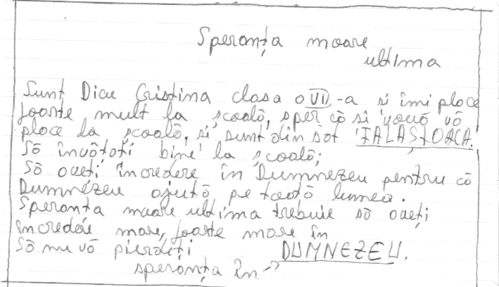 Speranța moare
ultima
Sunt Dicu Cristina clasa a VII-a și îmi place
foarte mult la școală, sper că și vouă vă
place la școală, și sunt din sat IALAȘTOACA.
Să învătați bine la școală;
Să aveți încredere în Dumnezeu pentru că
Dumnezeu ajută pe toată lumea.
Speranța moare ultima trebuie să aveți
încredere mare, foarte mare în
Să nu vă pierdeți DUMNEZEU.
speranța în →